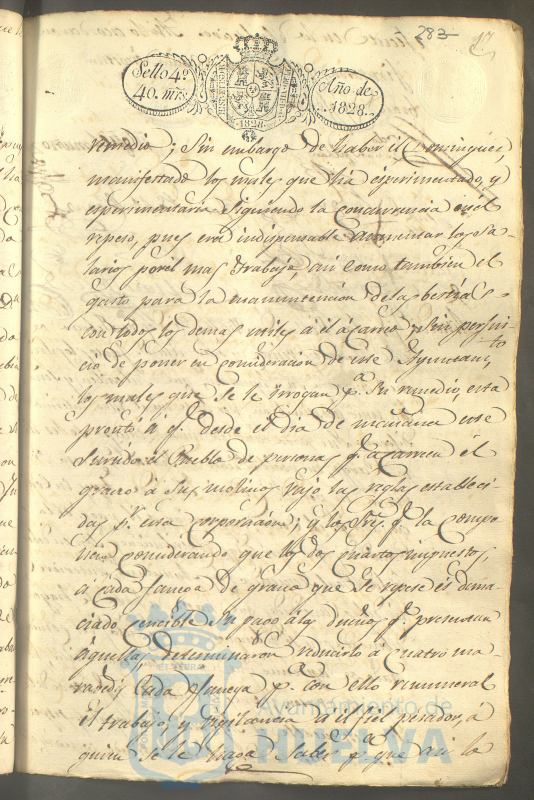 283
17
Sello 4º
40. mrs.
HISPANIARUM
1828
Año de
1828.
remedio; Sin embargo de haber el Dominguez,
manifestado los males que há esperimentado, y
esperimentaria siguiendo la concurrencia en el
repeso, pues era indispensable aumentar los sa-
larios por el mas trabajo asi como tambien el
gasto para la manuntencion de las bestias
con todos los demas utiles á él acarreo, y sin perjui-
cio de poner en consideracion de este Ayuntami.to
los males que se le irrogan p.a su remedio, esta
pronto á q.e desde el dia de mañana este
surtido el Pueblo de personas q.e acarreen el
grano á sus molinos vajo las reglas estableci-
das p.r esta corporacion; y los Sres. q.e la compo
nen considerando que los dos cuartos impuestos,
á cada fanega de grano que se repese es dema-
ciado sencible su pago á los dueños q.e presentan
aquellas determinaron reducirlo á cuatro ma-
ravedis cada fanega p.a con ello remunerar
el trabajo y vigilancia á el fiel pesador, á
quien se le haga saber p.a que asi lo
Ayuntamiento de
HUELVA